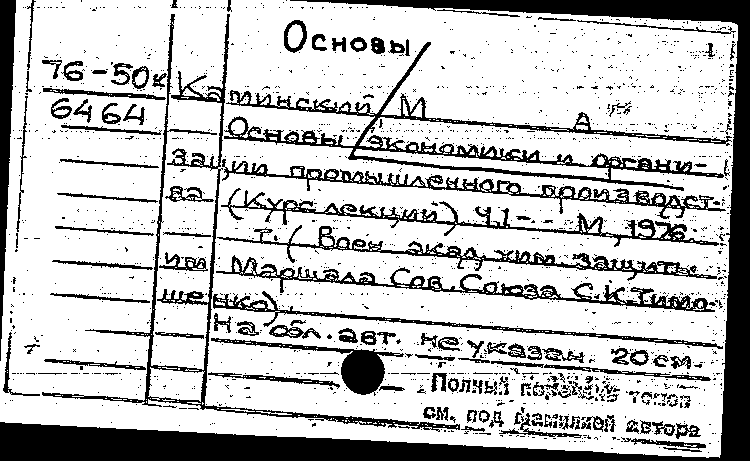 Основы 1
76-50к Каминский, М А
6464 Основы экономики и органи-
зации промышленного производст-
ва (Курс лекций) Ч.1-. - М., 1976.
т. (Воен акад. хим. защиты
им Маршала Сов. Союза С.К. Тимо-
шенко).
На обл. авт. не указан. 20 см.
Полный перечень томов
см. под фамилией автора